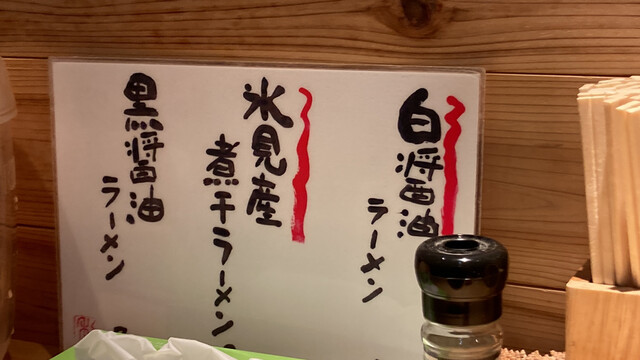 白醤油
ラーメン
氷見産
煮干ラーメン
黒醤油
ラーメン